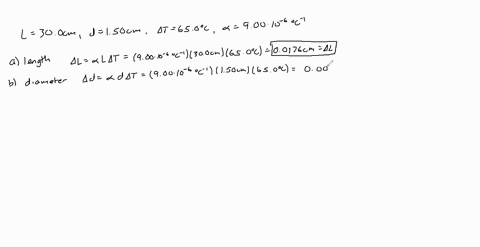 L = 30.0cm, d = 1.50cm, ΔT = 65.0°C, α = 9.00·10⁻⁶ °C⁻¹
a) length ΔL = αLΔT = (9.00·10⁻⁶ °C⁻¹)(30.0cm)(65.0°C) = 0.0176cm = ΔL
b) diameter Δd = αdΔT = (9.00·10⁻⁶ °C⁻¹)(1.50cm)(65.0°C) = 0.00